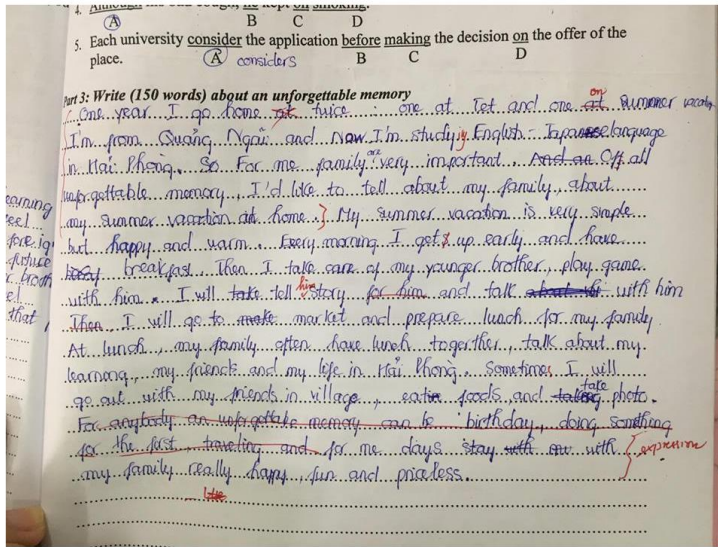 4. Although his bad cough, he kept on smoking.
A B C D
5. Each university consider the application before making the decision on the offer of the
place. A considers B C D
Part 3: Write (150 words) about an unforgettable memory
on
One year I go home at twice : one at Tet and one at summer vacation
I'm from Quảng Ngãi and Now I'm studying English - Japanese language
in Hải Phòng. So For me family are very important. And an Off all
unforgettable memory, I'd like to tell about my family, about
my summer vacation at home. My summer vacation is very simple
but happy and warm. Every morning I gets up early and have
breakfast. Then I take care of my younger brother, play game
with him. I will take tell him story for him and talk about with him
Then I will go to make market and prepare lunch for my family
At lunch, my family often have lunch together, talk about my
learning, my friends and my life in Hải Phòng. Sometimes I will
go out with my friends in village, eatin foods and taking take photo.
For anybody an unforgettable memory can be birthday, doing something
for the first, traveling and for me days stay with with expression
my family really happy, fun and priceless.
earning
feel
future
r broth
that